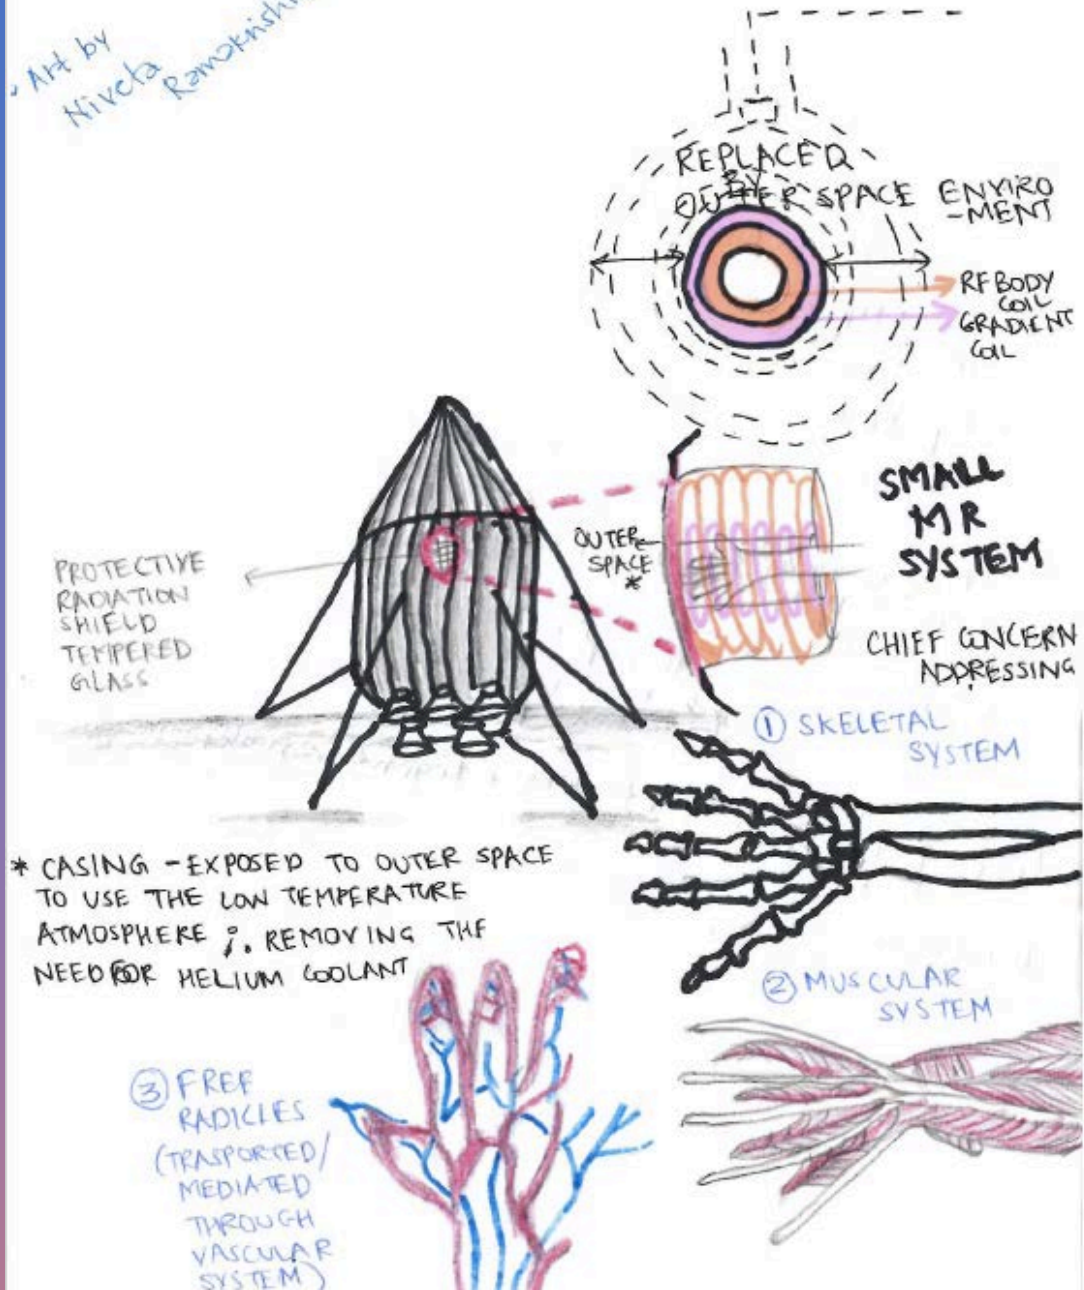 • Art by
Niveta
REPLACED
BY
OUTER SPACE ENVIRO
-MENT
RF BODY
COIL
GRADIENT
COIL
SMALL
MR
SYSTEM
OUTER
SPACE
*
PROTECTIVE
RADIATION
SHIELD
TEMPERED
GLASS
CHIEF CONCERN
ADDRESSING
① SKELETAL
SYSTEM
* CASING - EXPOSED TO OUTER SPACE
TO USE THE LOW TEMPERATURE
ATMOSPHERE ;. REMOVING THE
NEED FOR HELIUM COOLANT
② MUSCULAR
SYSTEM
③ FREE
RADICLES
(TRASPORTED/
MEDIATED
THROUGH
VASCULAR
SYSTEM)